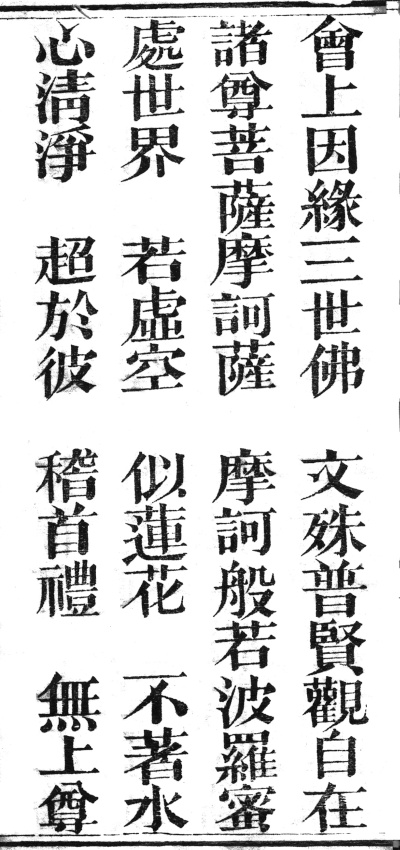 會上因緣三世佛　文殊普賢觀自在
諸尊菩薩摩訶薩　摩訶般若波羅蜜
處世界　若虛空　似蓮花　不著水
心清淨　超於彼　稽首禮　無上尊